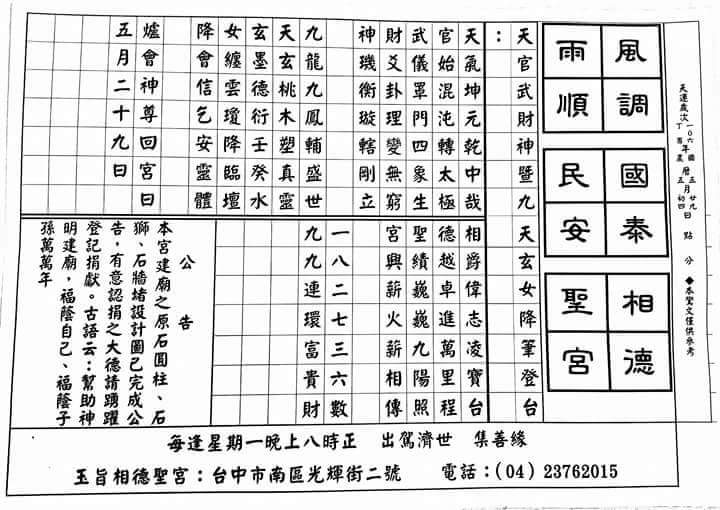 天運歲次 一〇六年國曆五月廿九日 點 分 ◆本鸞文僅供參考
丁酉年農曆五月初四日
風調
雨順
國泰
民安
相德
聖宮
天官武財神暨九天玄女降筆登台
：
天氣坤元乾中哉 相爵偉志凌寶台
官始混沌轉太極 德越卓進萬里程
武儀罩門四象生 聖績巍巍九陽照
財爻卦理變無窮 宮興薪火薪相傳
神璣衡璇轄剛立
一八二七三六數
九龍九鳳輔盛世 九九連環富貴財
天玄桃木塑真靈
玄墨德衍壬癸水
女纏雲瓊降臨壇
降會信乞安靈體
爐會神尊回宮日
五月二十九日
公告
本宮建廟之原石圓柱、石
獅、石牆堵設計圖已完成公
告，有意認捐之大德請踴躍
登記捐獻。古語云：幫助神
明建廟，福蔭自己、福蔭子
孫萬萬年
每逢星期一晚上八時正 出駕濟世 集善緣
玉旨相德聖宮：台中市南區光輝街二號 電話：(04) 23762015